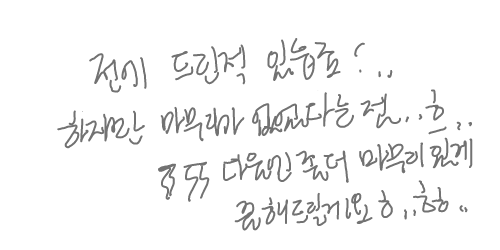 전에 드린적 있늠죠?..
하지만 마무리가 없었다는 전..흐..
ㅈㄸ 다음인 좀더 마무리 된게
끔 해드릴게요 ㅎ..ㅎㅎ..